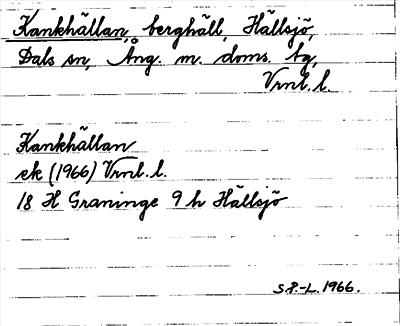 Kankhällan, berghäll, Hällsjö,
Dals sn, Ång. m. doms. bg,
Vrnl. l.
Kankhällan
ek (1966) Vrnl. l.
18 H Graninge 9 h Hällsjö
S.P.-L. 1966.